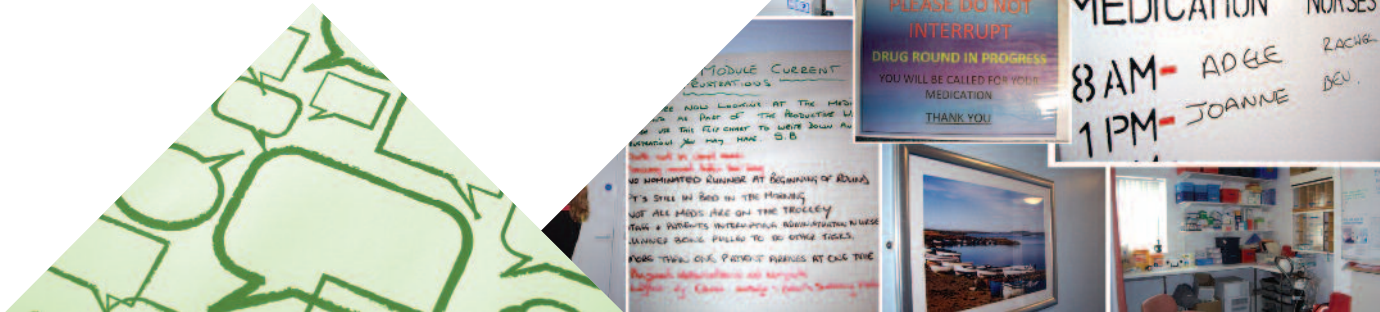 MODULE CURRENT
NOW LOOKING AT THE
AS PART OF THE PRODUCTIVE
THIS FLIP CHART TO WRITE DOWN
YOU MAY HAVE. S.B
NO NOMINATED RUNNER AT BEGINNING OF ROUND
PT'S STILL IN BED IN THE MORNING
NOT ALL MEDS ARE ON THE TROLLEY
STAFF + PATIENTS INTERRUPTING ADMINISTRATION NURSE
RUNNER BEING PULLED TO DO OTHER TASKS.
MORE THAN ONE PATIENT ARRIVES AT ONE TIME
PLEASE DO NOT
INTERRUPT
DRUG ROUND IN PROGRESS
YOU WILL BE CALLED FOR YOUR
MEDICATION
THANK YOU
MEDICATION NURSES
8 AM- ADELE RACHEL
1 PM- JOANNE BEV.